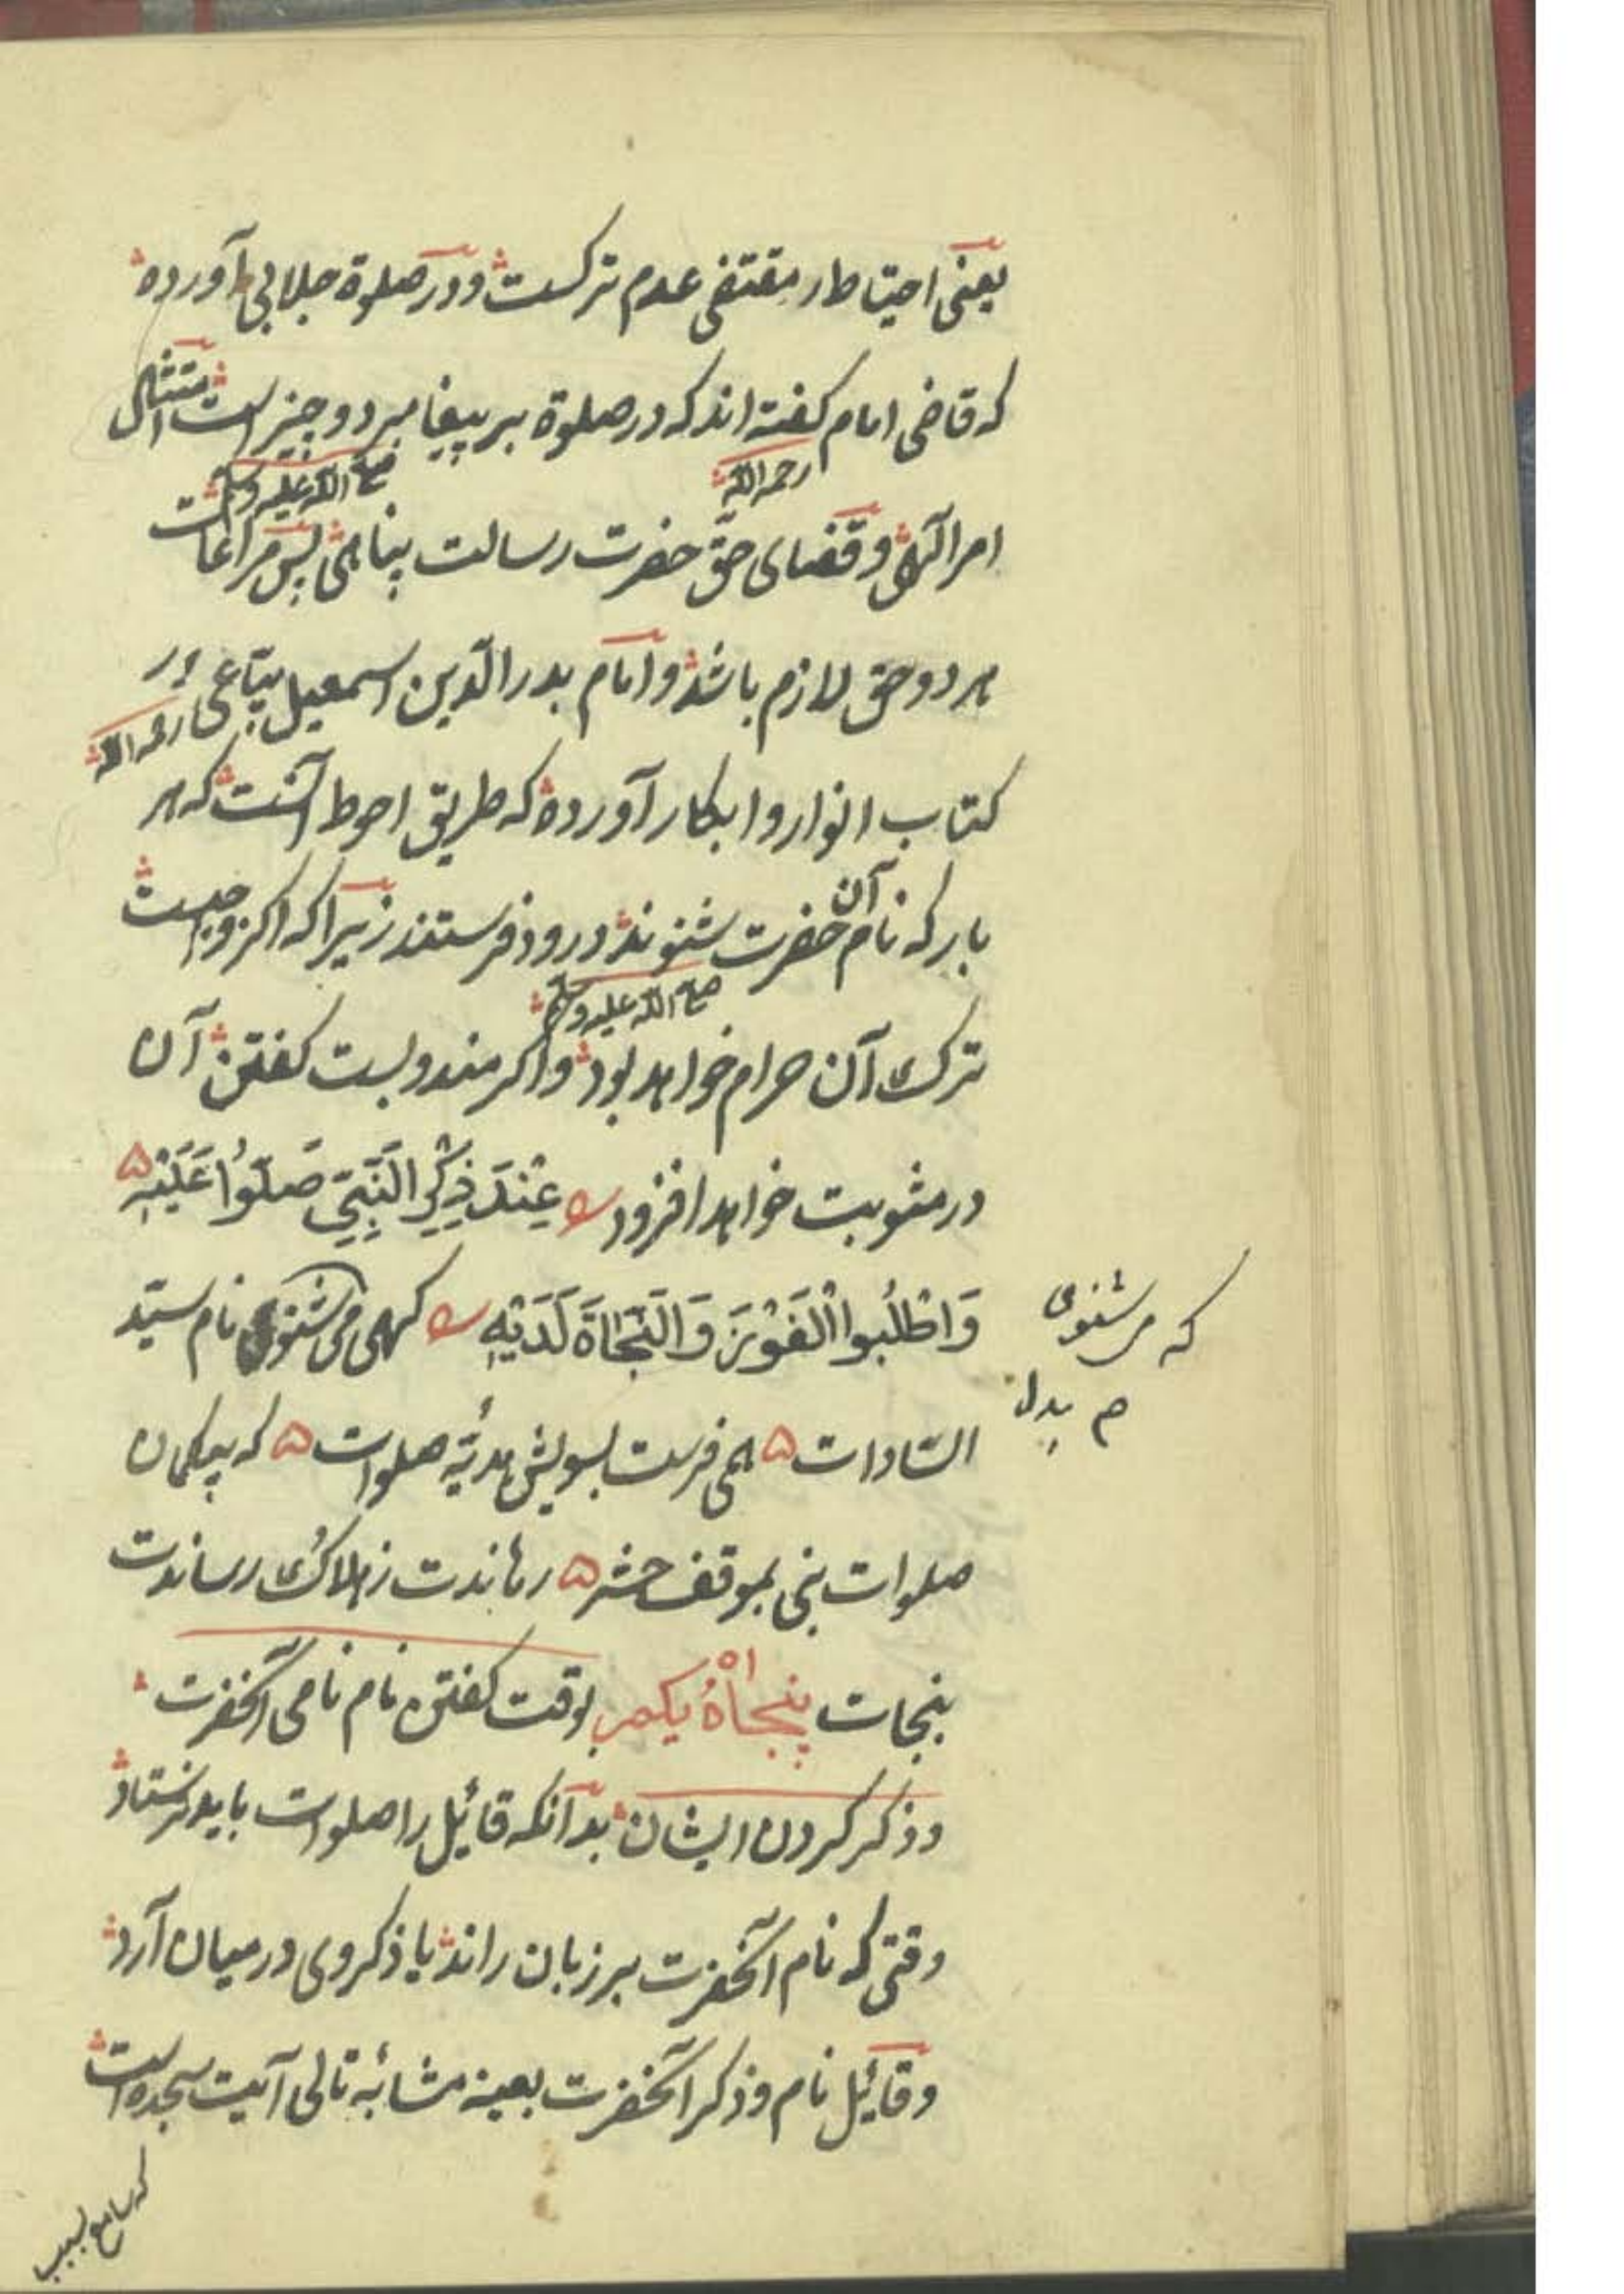 یعنی احتیاط ار مقتضی عدم ترکست و در صلوة جلابی آورده
که قاضی امام کفته اند که در صلوة بر پیغامبر دو چیز است امتثال
رحمه الله صلی الله علیه وسلم
امر الهی و قضای حق حضرت رسالت پناهی پس مراعات
هر دو حق لازم باشد و امام بدر الدین اسمعیل بتاعی در
رحمه الله
کتاب انوار و ابکار آورده که طریق احوط آنست که هر
بار که نام آن حضرت شنوند درود فرستند زیرا که اکر واجبست
صلی الله علیه وسلم
ترک آن حرام خواهد بود و اکر مندوبست کفتن آن
در مثوبت خواهد افزود عِنْدَ ذِکْرِ النَّبِیِّ صَلُّوْا عَلَیْهِ
وَاطْلُبُوا الْفَوْزَ وَالنَّجَاةَ لَدَیْهِ کهی می شنوی نام سید
که مر شنوی
م بدل
السادات همی فرست بسویش هدیّه صلوات که بیکمان
صلوات نبی بموقف حشر رهاندت ز هلاک و رساندت
بنجات پنجاهُ یکم بوقت کفتن نام نامی آنحضرت
و ذکر کردن ایشان بدانکه قائیل را صلوات باید فرستاد
وقتی که نام آنحضرت بر زبان راند یا ذکر وی درمیان آرد
و قائیل نام و ذکر آنحضرت بعینه مشابهٔ تالی آیت سجده است
که سامع بسبب